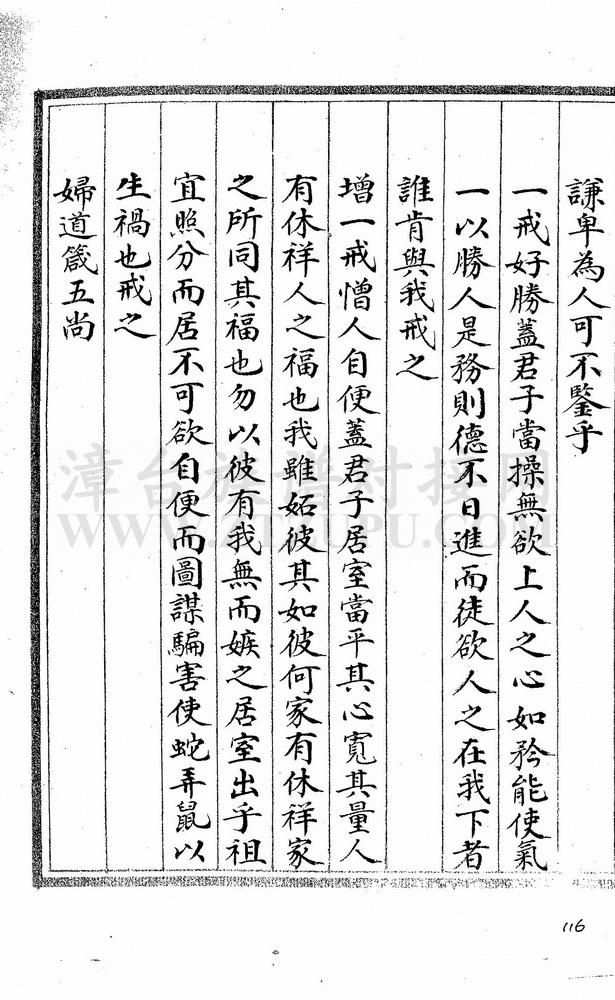 謙卑為人可不鑒乎
一戒好勝蓋君子當操無欲上人之心如矜能使氣
一以勝人是務則德不日進而徒欲人之在我下者
誰肯與我戒之
增一戒憎人自便蓋君子居室當平其心寬其量人
有休祥人之福也我雖妬彼其如彼何家有休祥家
之所同其福也勿以彼有我無而嫉之居室出乎祖
宜照分而居不可欲自便而圖謀騙害使蛇弄鼠以
生禍也戒之
婦道箴五尚
漳台族譜對接網
www.ZTZUPU.com
116